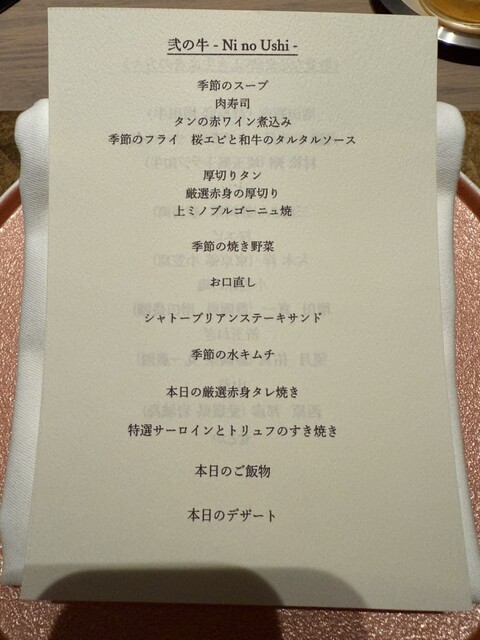 弐の牛 - Ni no Ushi -
季節のスープ
肉寿司
タンの赤ワイン煮込み
季節のフライ　桜エビと和牛のタルタルソース
厚切りタン
厳選赤身の厚切り
上ミノブルゴーニュ焼
季節の焼き野菜
お口直し
シャトーブリアンステーキサンド
季節の水キムチ
本日の厳選赤身タレ焼き
特選サーロインとトリュフのすき焼き
本日のご飯物
本日のデザート